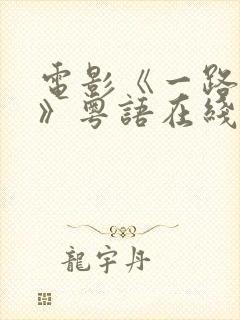 電影《一路
》粵語在綫
龍宇丹